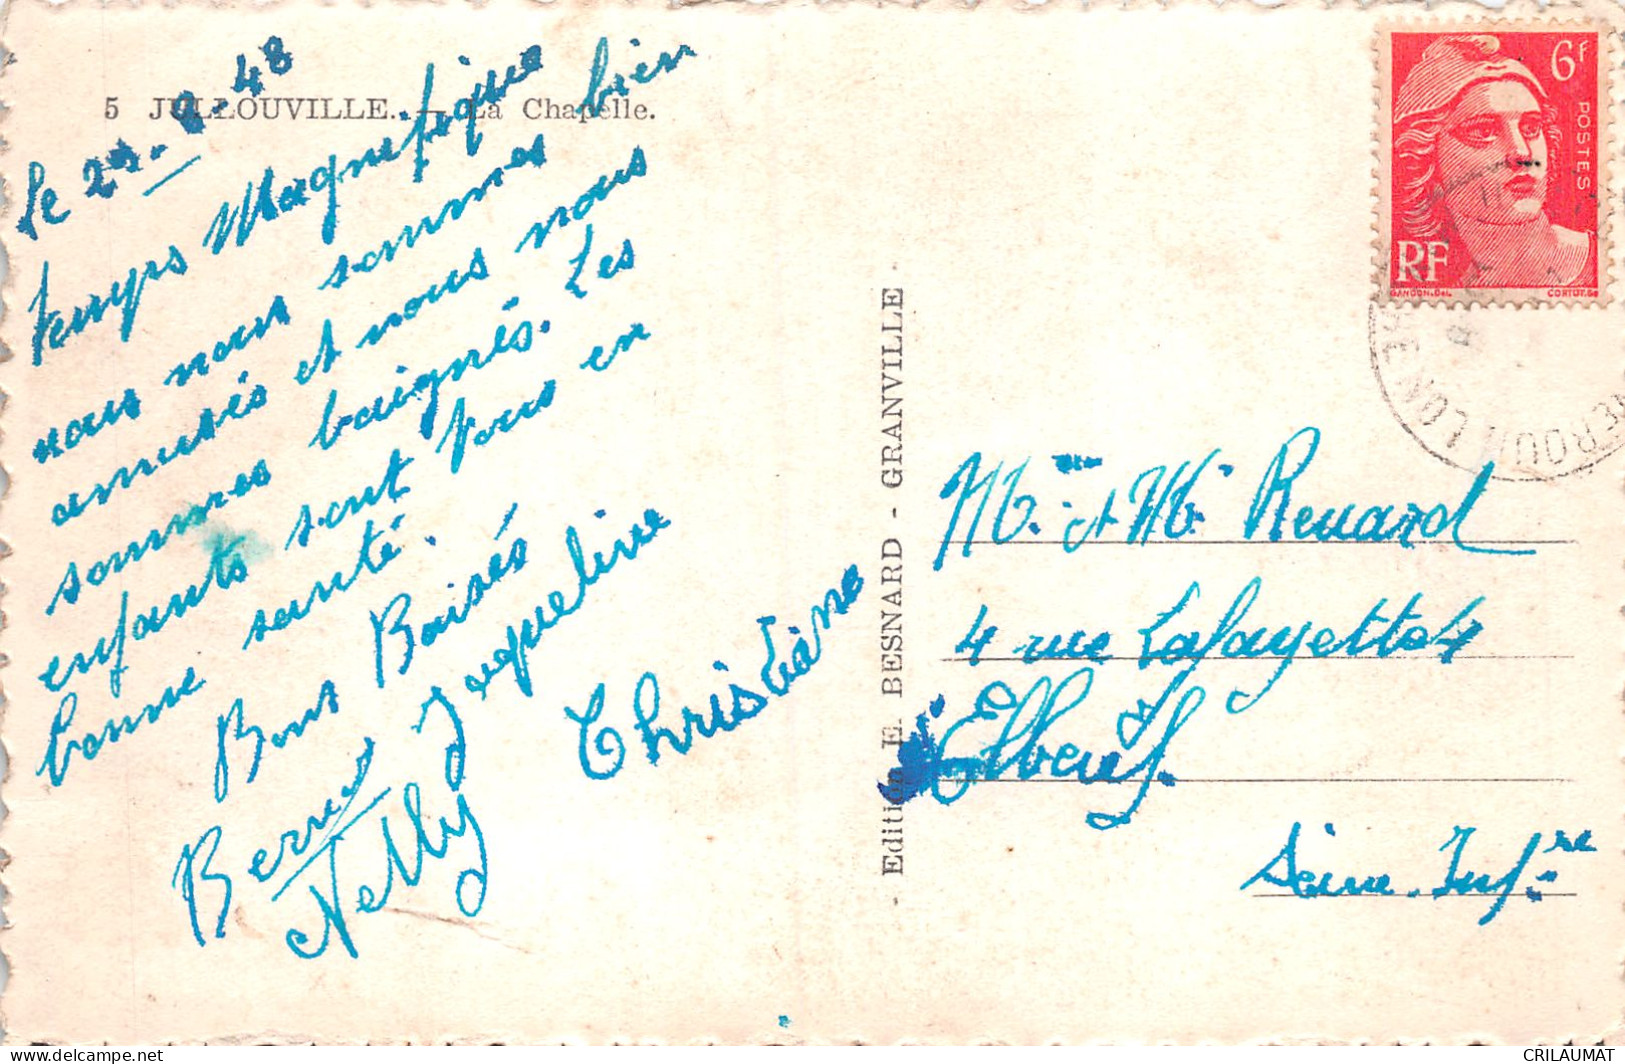 5 JULLOUVILLE. — La Chapelle.
le 48
temps Magnifique
nous nous sommes bien
amusés et nous nous
sommes baignés. Les
enfants sont tous en
bonne santé.
Bons Baisés
Jaqueline
Christiane
Nelly
- Edition E. BESNARD - GRANVILLE -
6F
POSTES
RF
GANDON.Del.
CORTOT.Sc
Mr. et Me. Renard
4 rue Lafayette 4
Elbeuf.
Seine. Infre
CRILAUMAT